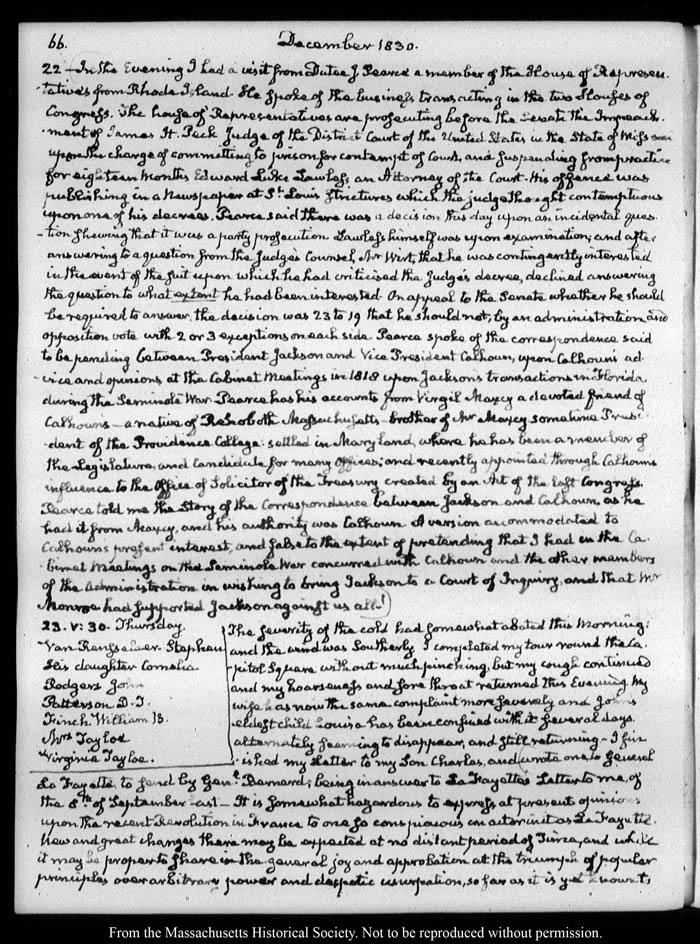 66.
December 1830.
22 — In the Evening I had a visit from Dutee J. Pearce a member of the House of Represen-
-tatives from Rhode Island. He spoke of the business transacting in the two Houses of
Congress. The house of Representatives are prosecuting before the Senate the Impeach-
ment of James H. Peck Judge of the District Court of the United States in the State of
upon the charge of committing to prison for contempt of Court, and suspending from practice
for eighteen Months Edward Luke Lawless, an Attorney of the Court. His offence was
publishing in a Newspaper at St. Louis strictures which the judge thought contemptuous
upon one of his decrees. Pearce said there was a decision this day upon an incidental ques-
-tion shewing that it was a party prosecution. Lawless himself was upon examination; and after
answering to a question from the Judge's Counsel, Mr Wirt, that he was contingently interested
in the event of the suit upon which he had criticised the Judge's decree, declined answering
the question to what extent he had been interested. On appeal to the Senate whether he should
be required to answer, the decision was 23 to 19 that he should not; by an administration and
opposition vote with 2 or 3 exceptions on each side. Pearce spoke of the correspondence said
to be pending between President Jackson and Vice President Calhoun, upon Calhoun's ad-
-vice and opinions at the Cabinet Meetings in 1818 upon Jackson's transactions in Florida
during the Seminole War. Pearce has his accounts from Virgil Maxcy a devoted friend of
Calhoun's — a native of Rehoboth Massachusetts — brother of Mr Maxcy sometime Presi-
-dent of the Providence College: settled in Maryland, where he has been a member of
the Legislature, and Candidate for many Offices; and recently appointed through Calhoun's
influence to the Office of Solicitor of the Treasury created by an Act of the last Congress.
Pearce told me the Story of the Correspondence between Jackson and Calhoun, as he
had it from Maxcy, and his authority was Calhoun. A version accommodated to
Calhoun's present interest, and false to the extent of pretending that I had in the Ca-
binet Meetings on the Seminole War concurred with Calhoun and the other members
of the Administration in wishing to bring Jackson to a Court of Inquiry, and that Mr
Monroe had supported Jackson against us all!
23. V: 30. Thursday.
Van Rensselaer Stephen
his daughter Cornelia
Rodgers John
Patterson D. T.
Finch William B.
Mrs Tayloe
Virginia Tayloe.
The severity of the cold had somewhat abated this Morning;
and the wind was Southerly. I completed my tour round the Ca-
-pitol Square without much pinching, but my cough continued
and my hoarseness and sore throat returned this Evening. My
wife has now the same complaint more severely and John's
eldest child Louisa has been confined with it several days.
alternately seeming to disappear, and still returning — I fin-
-ished my Letter to my Son Charles, and wrote one to General
La Fayette, to send by Genl. Bernard; being in answer to La Fayette's Letter to me, of
the 8th of September last — It is somewhat hazardous to express at present opinions
upon the recent Revolution in France to one so conspicuous an actor in it as La Fayette.
New and great changes there may be expected at no distant period of Time, and while
it may be proper to share in the general joy and approbation at the triumph of popular
principles over arbitrary power and despotic usurpation, so far as it is yet known,
From the Massachusetts Historical Society. Not to be reproduced without permission.